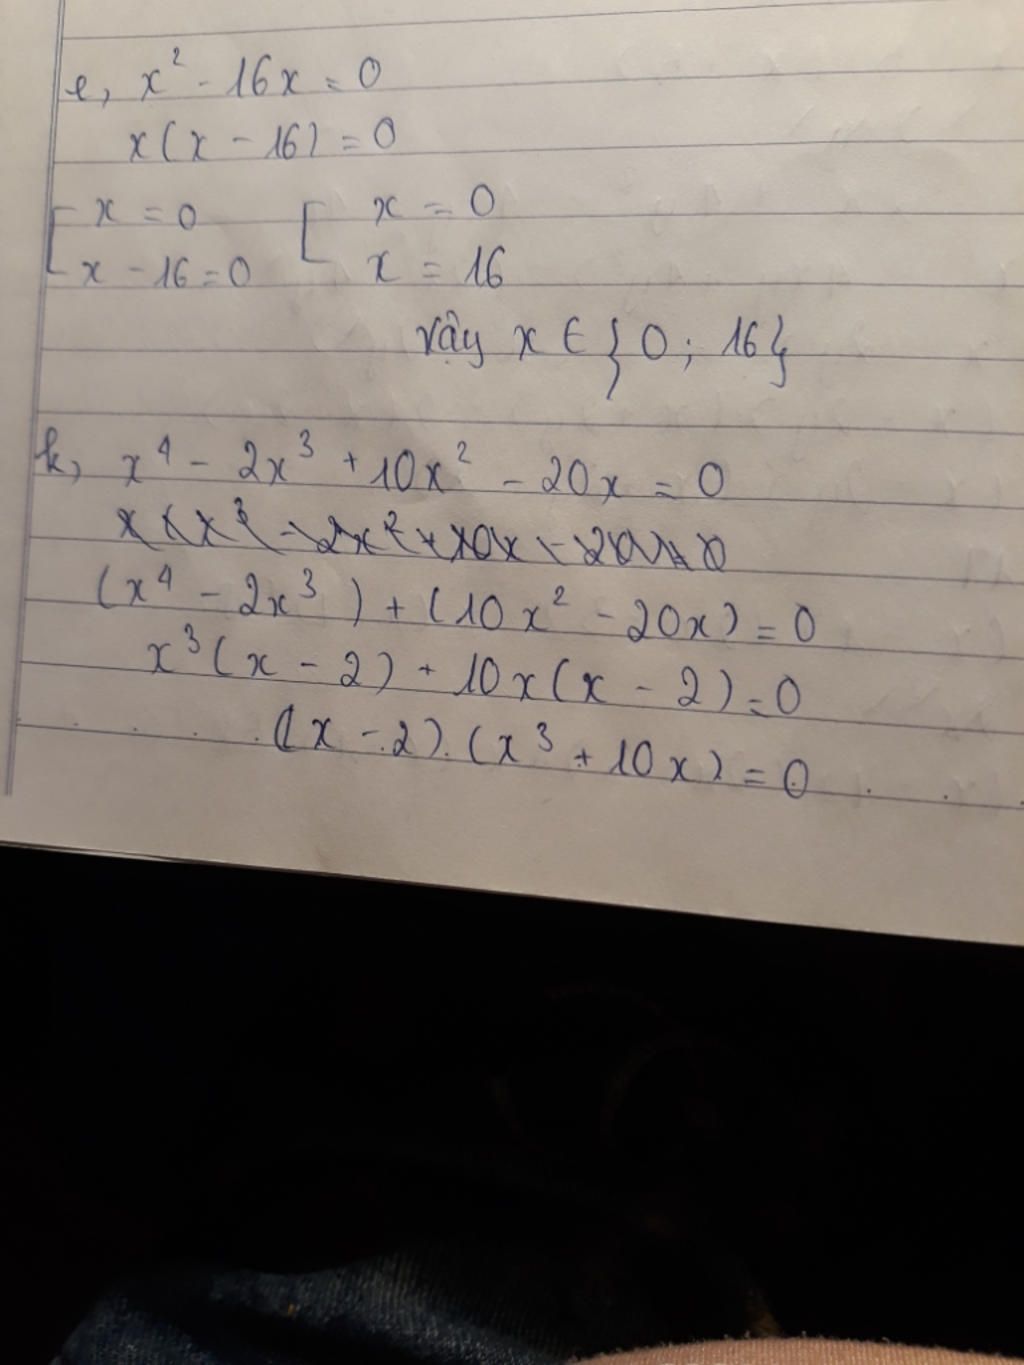 e, x² - 16x = 0
x(x - 16) = 0
[ x = 0 [ x = 0
x - 16 = 0 x = 16
vậy x ∈ }0; 16}
k, x⁴ - 2x³ + 10x² - 20x = 0
x(x³ - 2x² + 10x - 20) = 0
(x⁴ - 2x³) + (10x² - 20x) = 0
x³(x - 2) + 10x(x - 2) = 0
(x - 2).(x³ + 10x) = 0